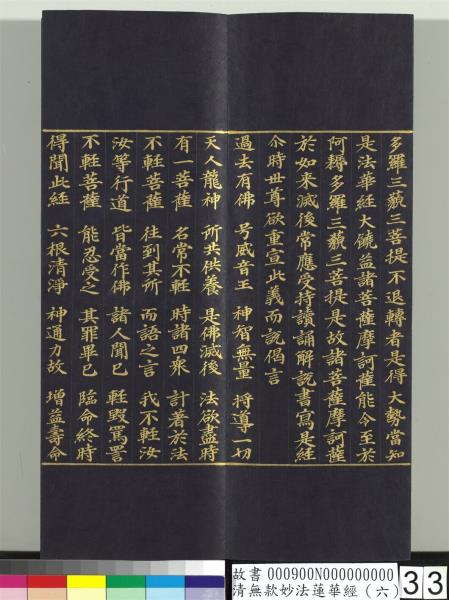 多羅三藐三菩提不退轉者是得大勢當知
是法華經大饒益諸菩薩摩訶薩能令至於
阿耨多羅三藐三菩提是故諸菩薩摩訶薩
於如來滅後常應受持讀誦解說書寫是經
尒時世尊欲重宣此義而說偈言
過去有佛 号威音王 神智無量 將導一切
天人龍神 所共供養 是佛滅後 法欲盡時
有一菩薩 名常不輕 時諸四眾 計著於法
不輕菩薩 往到其所 而語之言 我不輕汝
汝等行道 皆當作佛 諸人聞已 輕毀罵詈
不輕菩薩 能忍受之 其罪畢已 臨命終時
得聞此經 六根清淨 神通力故 增益壽命
故書 000900N000000000
清無款妙法蓮華經(六)
33